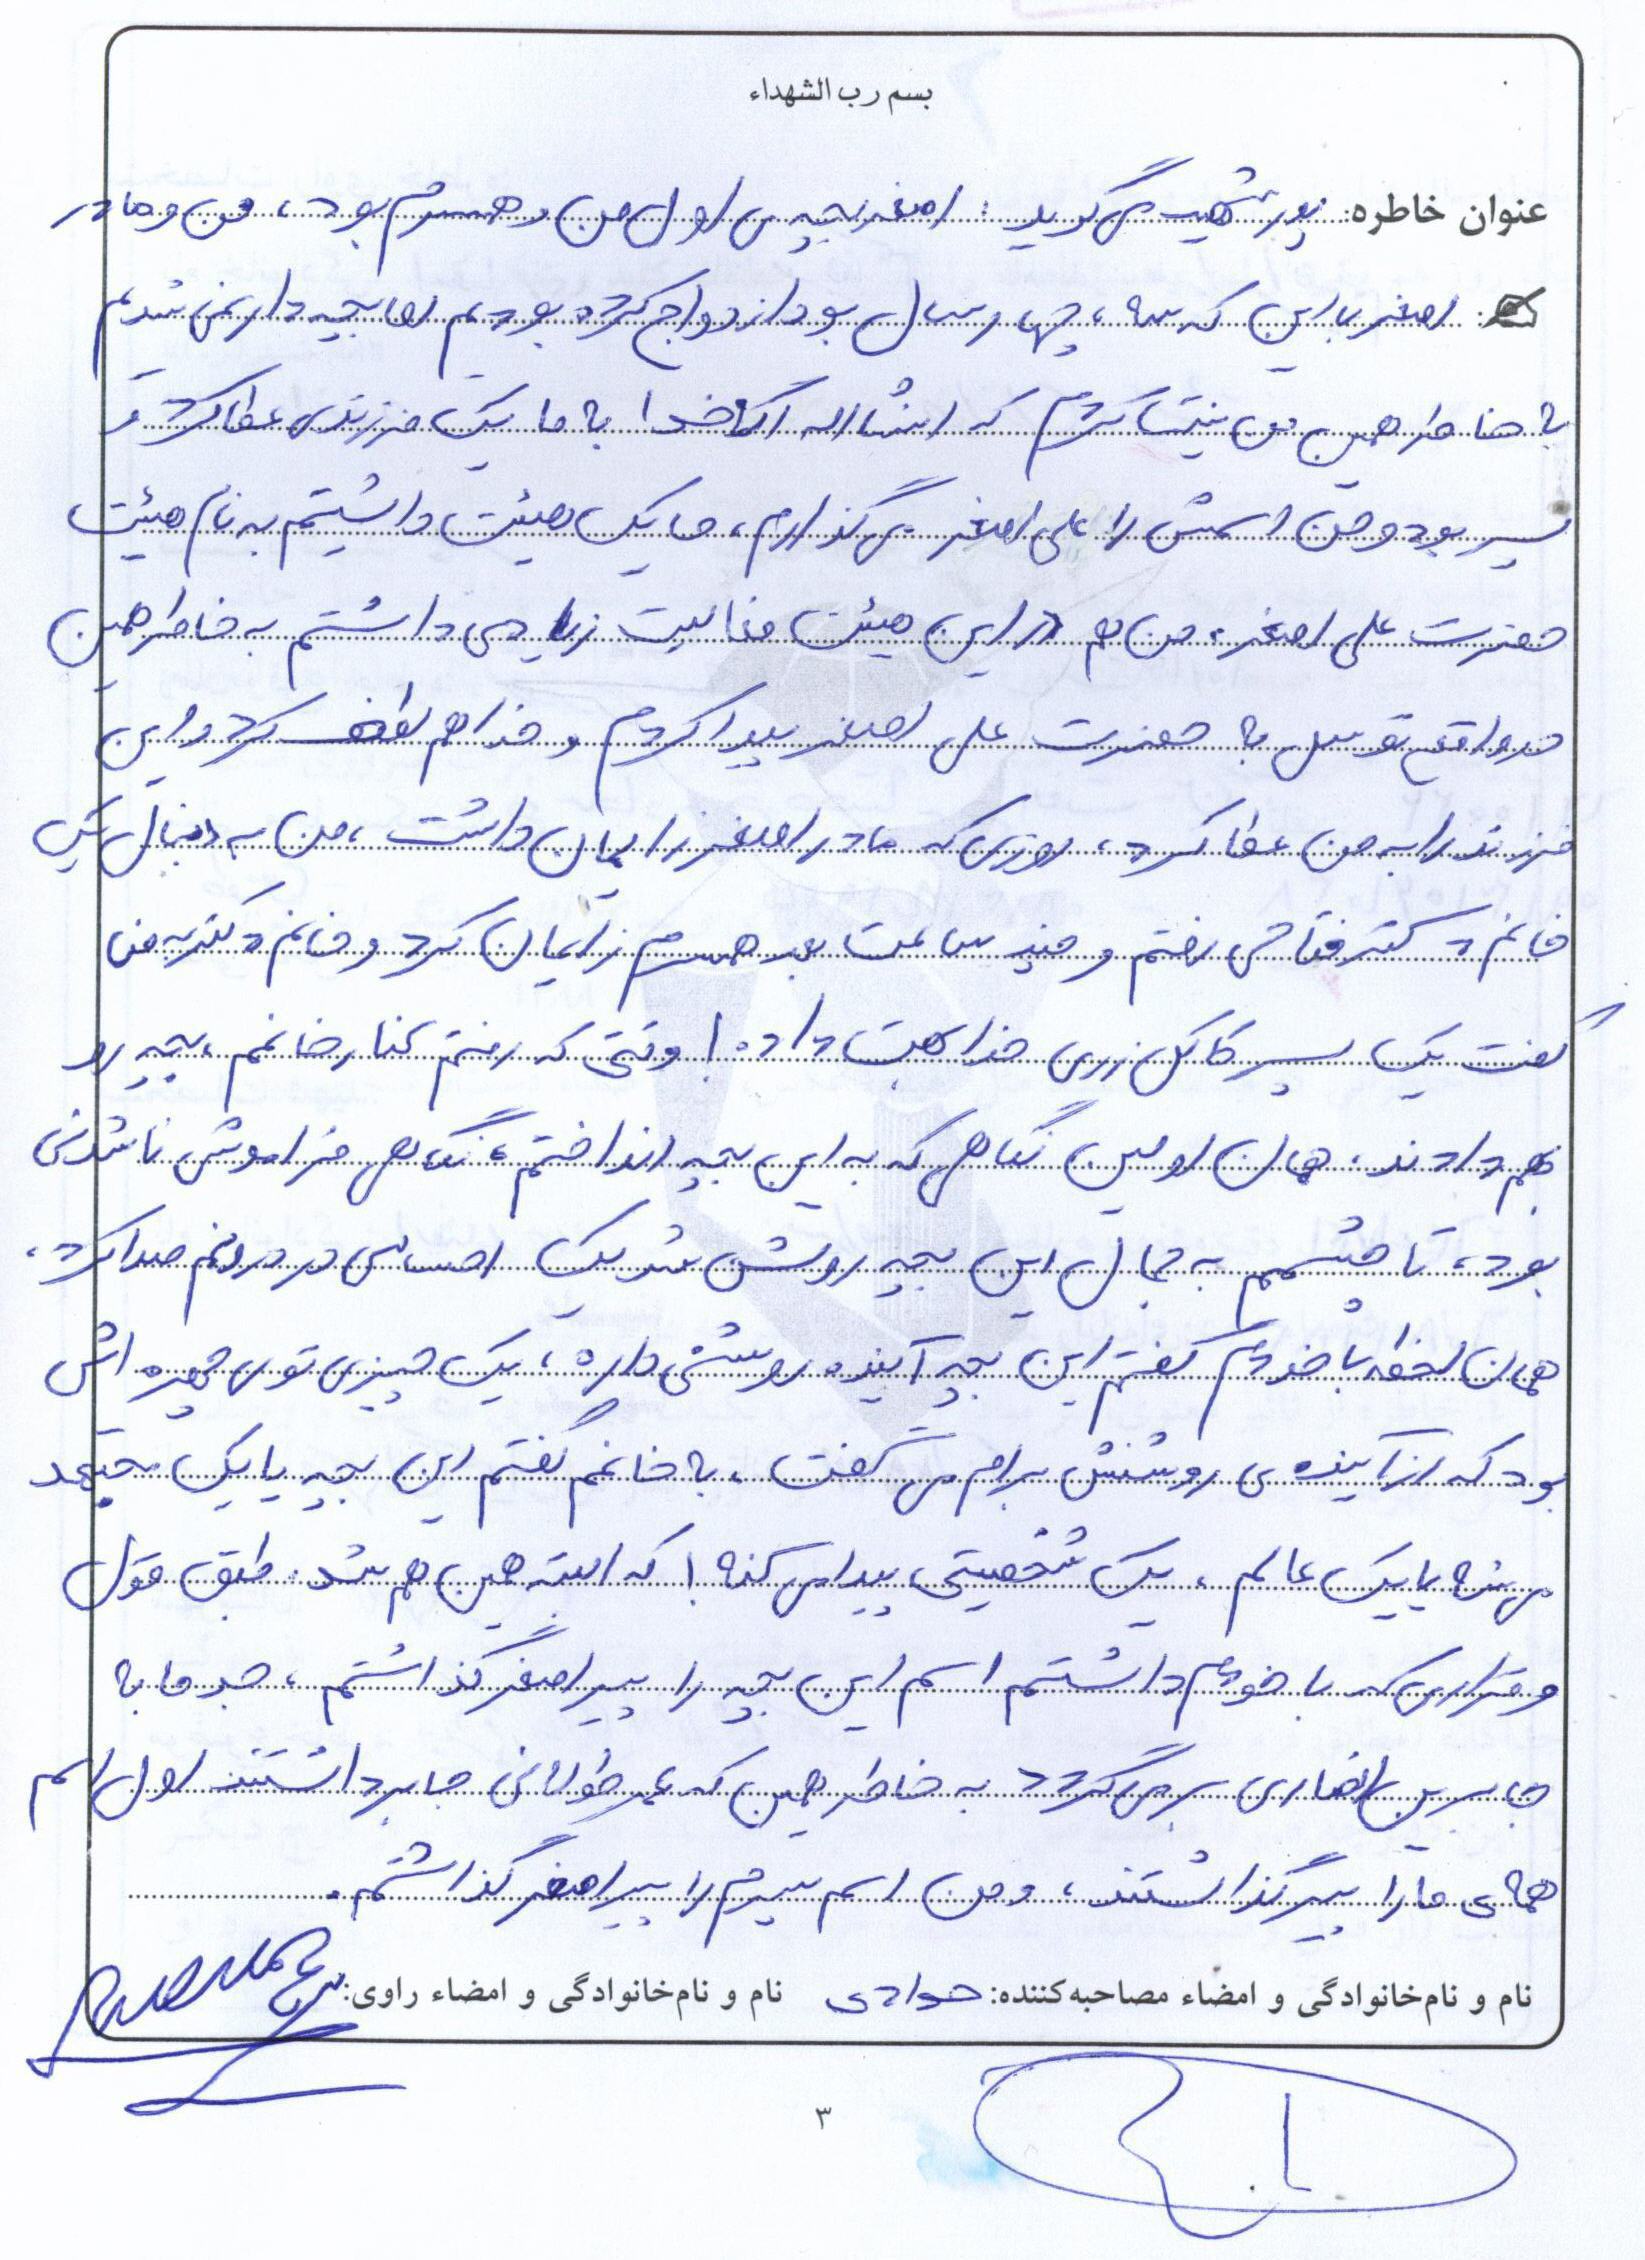 بسم رب الشهداء
عنوان خاطره: پدر شهید می‌گوید: اصغر بچه‌ی اول من و همسرم بود، من و مادر
اصغر با این که سه، چهار سال بود ازدواج کرده بودیم اما بچه دار نمی‌شدیم
به خاطر همین من نیت کردم که انشااله اگه خدا به ما یک فرزندی عطا کرد و
پسر بود من اسمش را علی اصغر می‌گذارم، ما یک هیئت داشتیم به نام هیئت
حضرت علی اصغر، من هم در این هیئت فعالیت زیادی داشتم به خاطر همین
در واقع توسل به حضرت علی اصغر پیدا کردم و خدا هم لطف کرد و این
فرزند را به من عطا کرد، روزی که مادر اصغر زایمان داشت، من به دنبال یک
خانم دکتر رفتم و چند ساعت بعد همسرم زایمان کرد و خانم دکتر به من
گفت یک پسر کاکل زری خدا بهت داده! وقتی که رفتم کنار خانمم، بچه رو
بهم دادند، همان اولین نگاهی که به این بچه انداختم، نگاهی فراموش ناشدنی
بود، تا چشمم به جمال این بچه روشن شد یک احساسی در درونم صدا کرد،
همان لحظه با خودم گفتم این بچه آینده روشنی داره، یک چیزی توی چهره اش
بود که از آینده‌ی روشنش برام می‌گفت، به خانمم گفتم این بچه یا یک مجتهد
می‌شه یا یک عالم، یک شخصیتی پیدا می‌کنه! که البته همین هم شد. طبق قول
و قراری که با خودم داشتم اسم این بچه را پیر اصغر گذاشتم، جد ما به
جابربن انصاری برمی‌گردد به خاطر همین که عمر طولانی جابر داشتند اول اسم
همه‌ی ما را پیر گذاشتند، و من اسم پسرم را پیر اصغر گذاشتم.
نام و نام‌خانوادگی و امضاء مصاحبه‌کننده: جوادی نام و نام‌خانوادگی و امضاء راوی:
۳